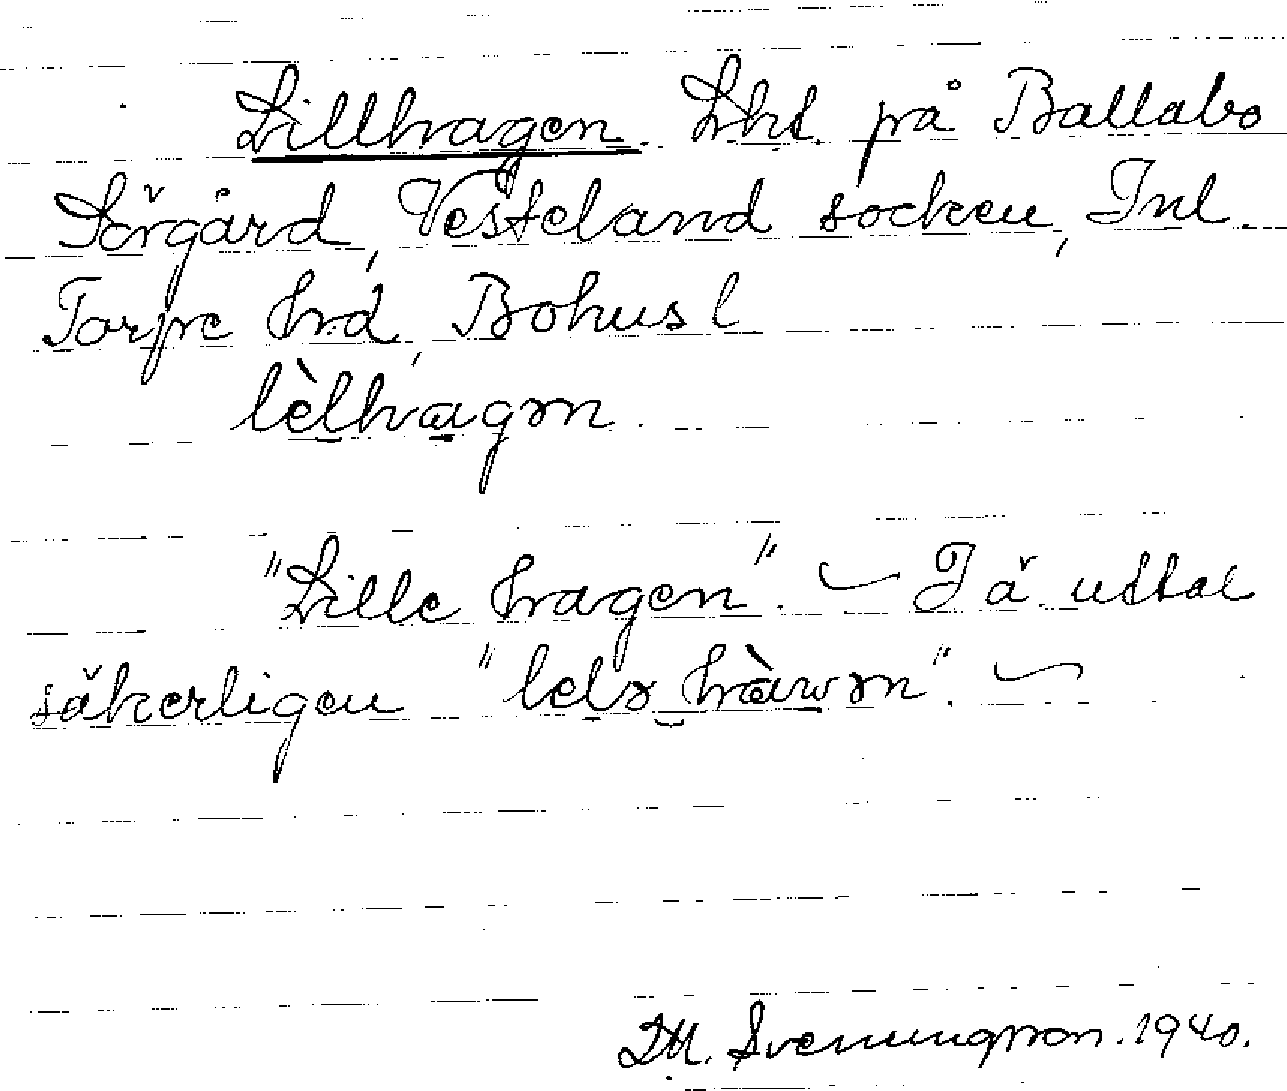 Lillhagen Lht. på Ballabo
Sörgård, Vesteland socken, Inl.
Torpe hrd, Bohusl
lèlhagən.
"Lille hagen". — I ä. uttal
säkerligen "lelə hàwən". —
D.M. Svenningsson. 1940.